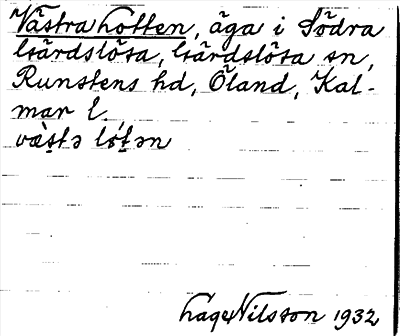 Västra Lotten, äga i Södra
Gärdslösa, Gärdslösa sn,
Runstens hd, Öland, Kal-
mar l.
væ̀stə lótən
Lage Nilsson 1932